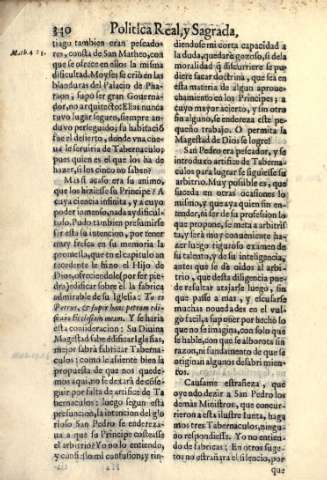 340 Politica Real, y Sagrada,
Math. 4
tiago tambien eran pescado-
res, consta de San Matheo, con
que se ofrece en ellos la misma
dificultad. Moyses se criò en las
blanduras del Palacio de Pha-
raon, supo ser gran Governa-
dor, no arquitecto: Elias nunca
tuvo lugar seguro, siempre an-
duvo perseguido; su habitaciõ
fue el desierto, donde vna cue-
va le servìria de Tabernaculo;
pues quien es el que los ha de
hazer, si los cinco no saben?
Mas si acaso era su animo,
que los hiziesse su Principe? A
cuya ciencia infinita, y a cuyo
poder inmenso, nada ay dificul-
toso. Pudo tambien presumirse
ser esta su intencion, por tener
muy fresca en su memoria la
promessa, que en el capitulo an
tecedente le hizo el Hijo de
Dios, ofreciendoles (por ser pie
dra) edificar sobre èl la fabrica
admirable de su Iglesia: Tu es
Petrus, & super hanc petram edi-
ficabo Ecclesiam meam. Y se haria
esta consideracion: Su Divina
Magestad sabe edificar Iglesias,
mejor sabrà fabricar Tabernacu-
los; como le assiente bien la
propuesta de que nos quede-
mos aqui, no se dexarà de conse-
guir por falta de artifice de Ta
bernaculos: luego segun esta
presuncion, la intencion del glo
rioso San Pedro se endereza-
va a que su Principe costeasse
el arbitrio? Yo no lo entiendo,
y consiesso mi confusion; y rin-
diendose mi corta capacidad a
la duda, quedarè gozoso, si de la
moralidad q̃ discurriere se pu-
diere sacar doctrina, que sea en
esta materia de algun aprove-
chamiento en los Principes; a
cuyo mayor acierto, y sin otro
fin alguno, se endereza este pe-
queño trabajo. O permita la
Magestad de Dios se logre!
San Pedro era pescador, y se
introduxo a artifice de Taberna-
culos para lograr se siguiesse su
arbitrio. Muy possible es, que
suceda en otras ocasiones lo
mismo, y que aya quien sin en-
tender, ni ser de su profesion lo
que propone, se meta a arbitris-
ta; y serà muy conveniente ha-
zer luego riguroso examen de
su talento, y de su inteligencia,
antes que se dè oidos al arbi-
trio, que desta diligencia pue-
de resultar atajarse luego, sin
que passe a mas, y escusarse
muchas novedades en el vul-
go facil, a suponer por hecho lo
que no se imagina, con solo que
se hable, con que se alborota sin
razon, no fundamento de que se
originan algunos desabrimien-
tos.
Causame estrañeza, que
oyendo dezir a San Pedro los
demàs Ministros, que concur-
rieron a esta ilustre fuera, haga-
mos tres Tabernaculos, ningu-
no respondiesse. Yo no entien-
do de fabricas: En otros suge-
tos no estrañara el silencio, por
que